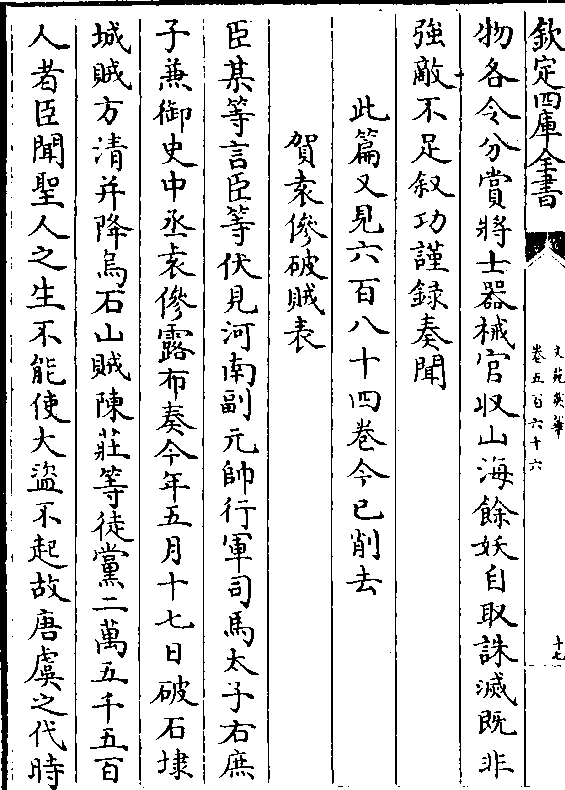 欽定四庫全書
文苑英華
卷五百六十六
十七
物各令分賞將士器械官収山海餘妖自取誅滅既非
強敵不足叙功謹録奏聞
此篇又見六百八十四卷今已削去
賀袁傪破賊表
臣某等言臣等伏見河南副元帥行軍司馬太子右庶
子兼御史中丞袁傪露布奏今年五月十七日破石埭
城賊方清并降烏石山賊陳莊等徒黨二萬五千五百
人者臣聞聖人之生不能使大盜不起故唐虞之代時